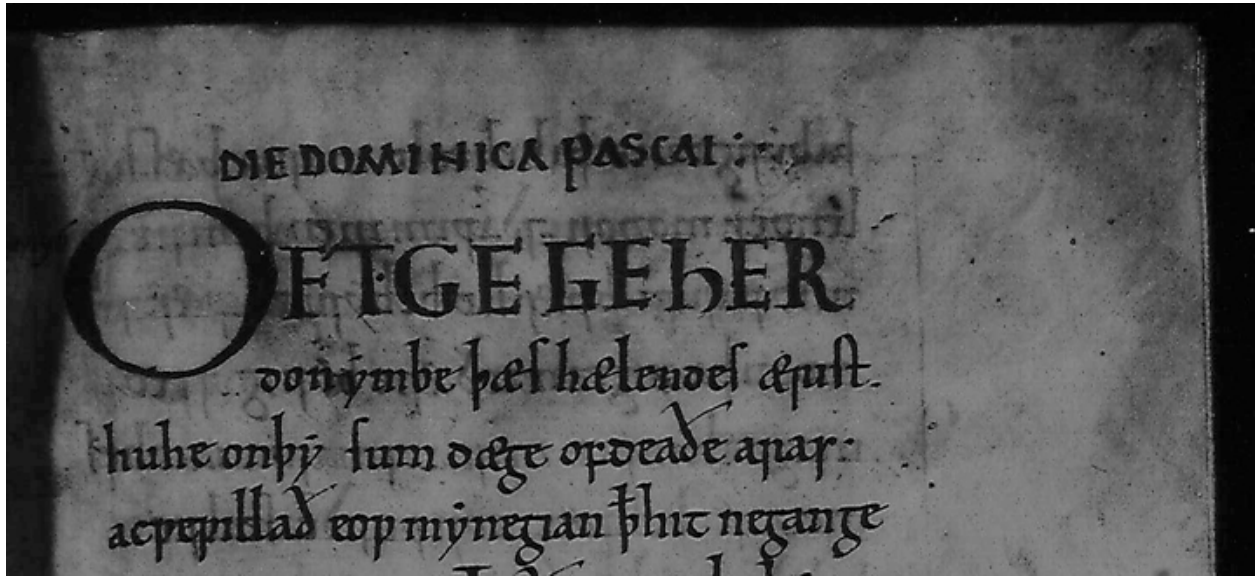 DIE DOMINICA PASCAE :·
OFT GE GEHER
don ẏmbe þæs hælendes ærist.
hu he on þẏsum dæge of deaðe aras:·
ac ƿe ƿillað eoƿ mẏnegian ꝥ hit ne gange